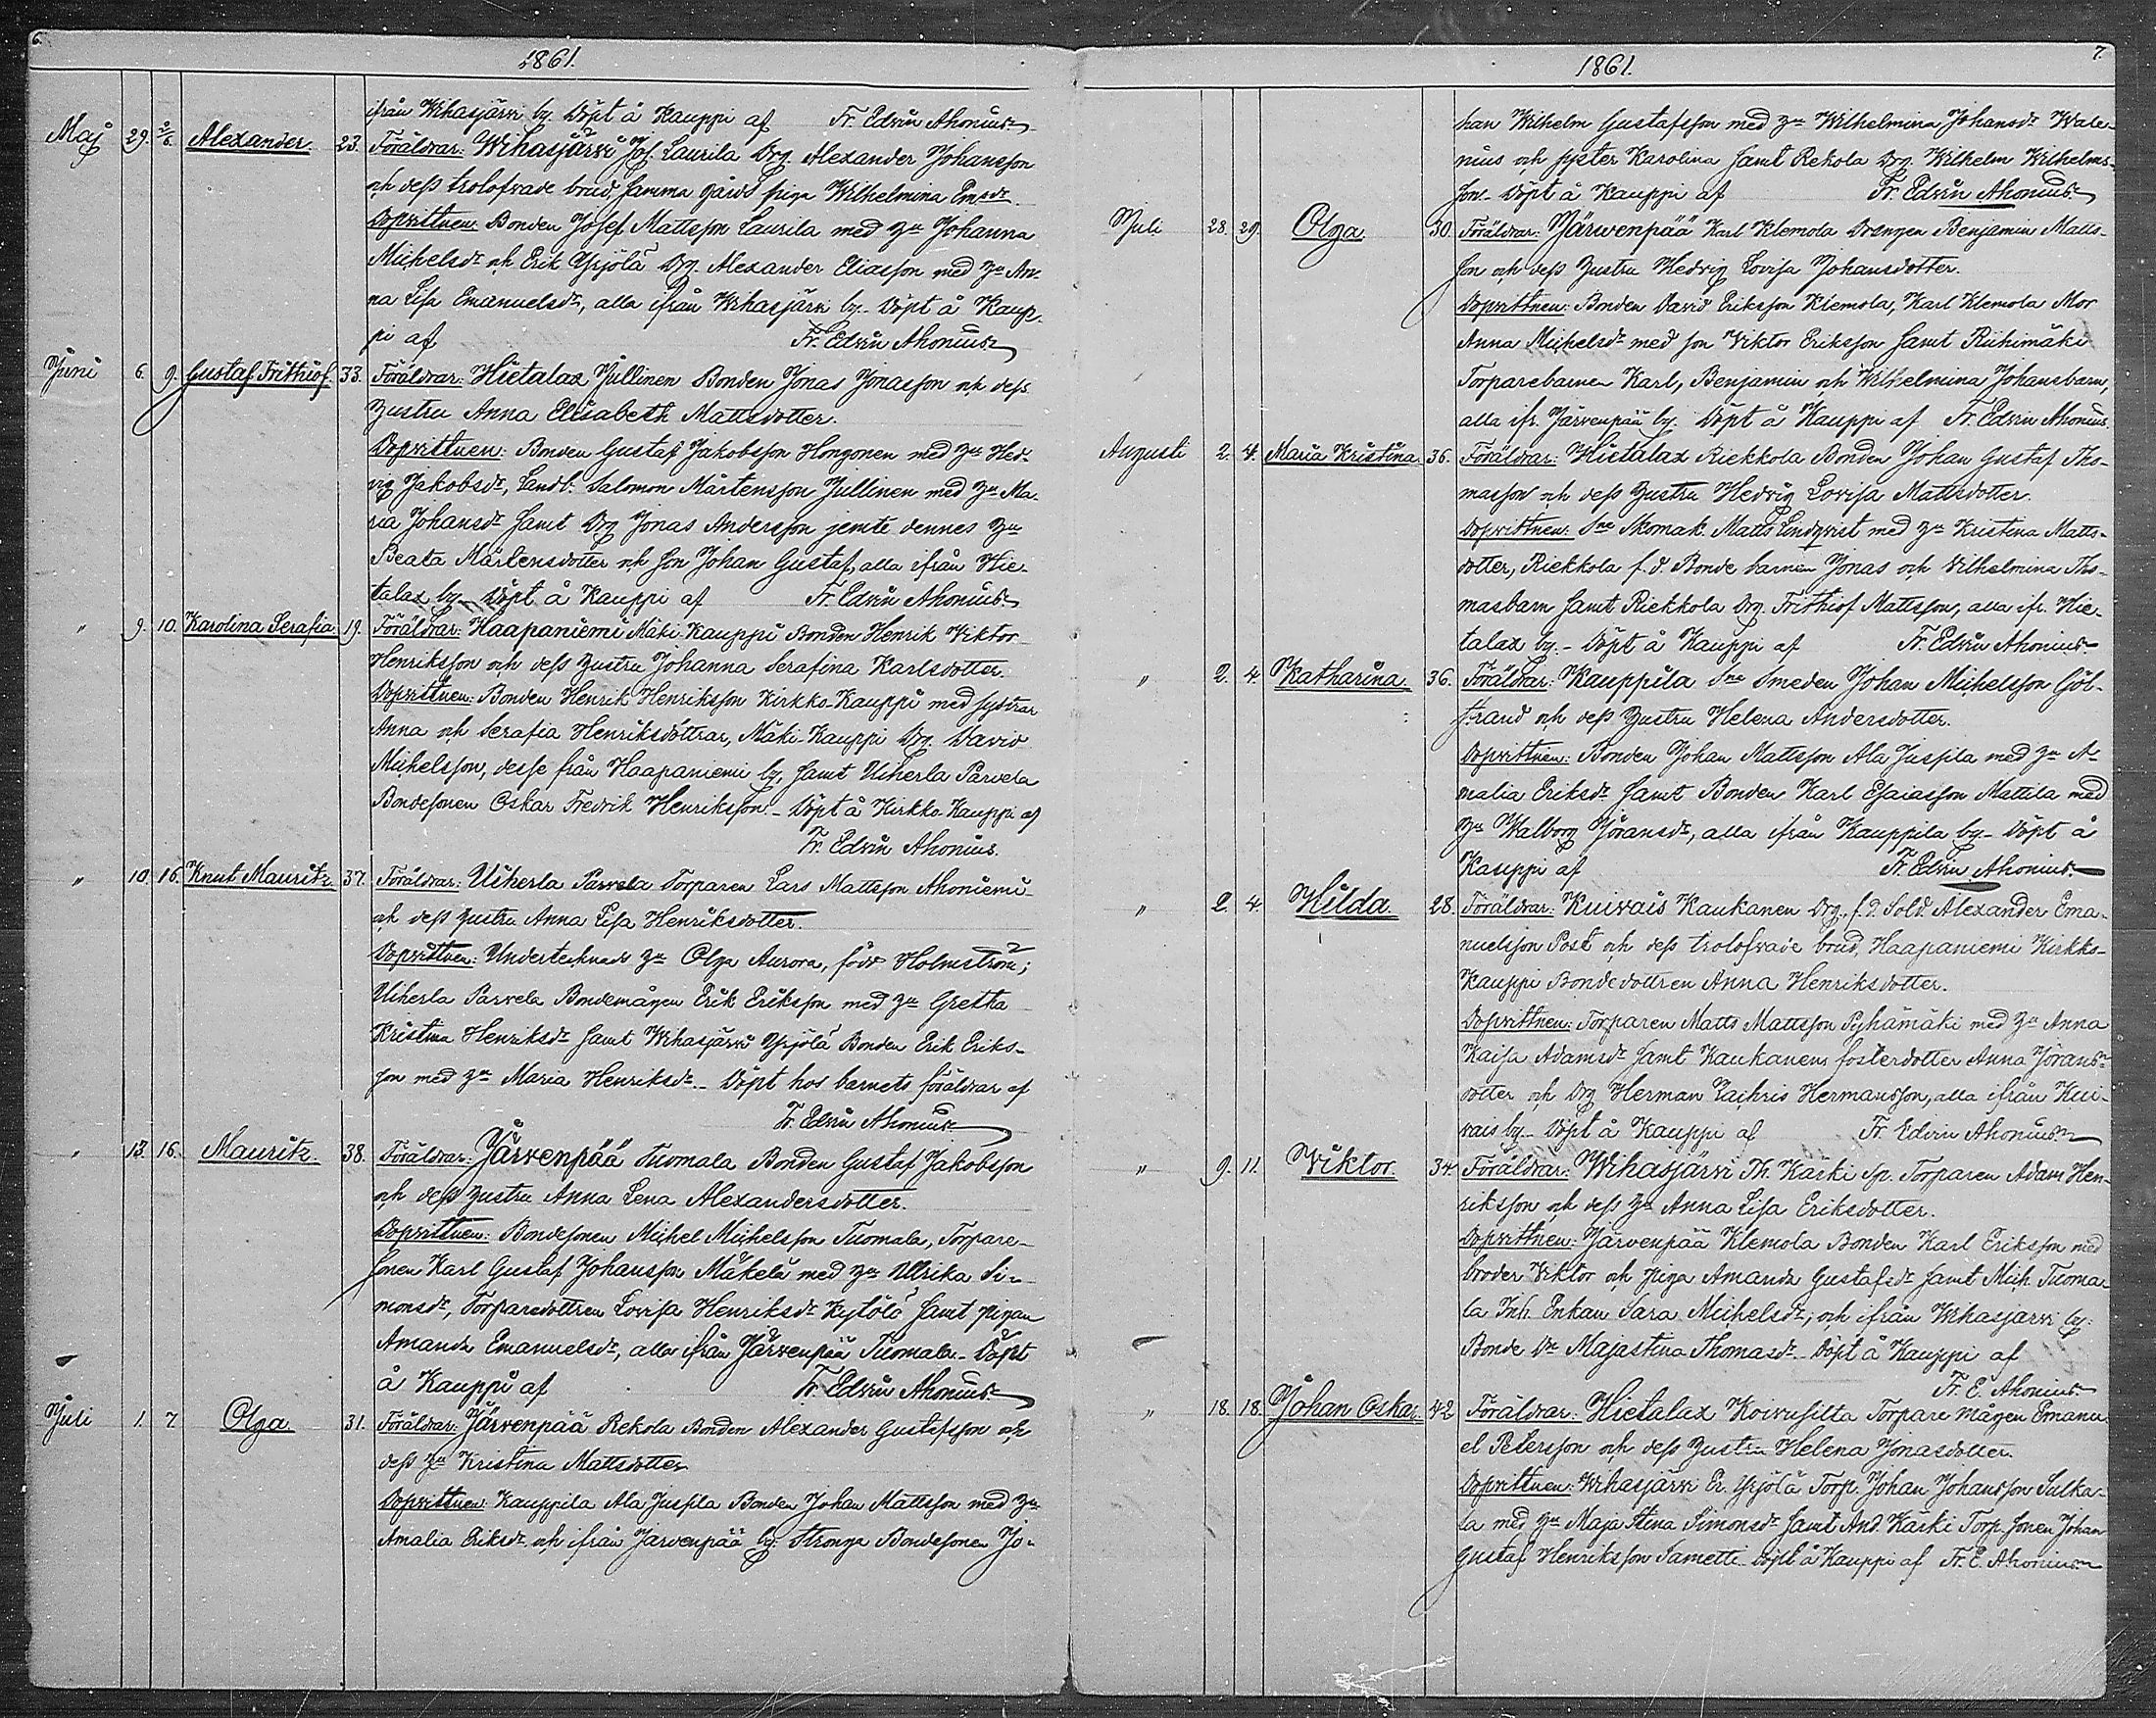 6.
1861.
ifrån Wihasjärvi by. Döpt å Kauppi af Fr. Edvin Ahonius
Maj 29. 2/6. Alexander. 23. Föräldrar: Wihasjärvi Jos. Laurila Drg. Alexander Johansson
och dess trolofvade brud, samma gårds piga Wilhelmina Emsdr.
Dopvittnen: Bonden Josef Mattsson Laurila med hu Johanna
Michelsdr och Erik Yrjölä Drg. Alexander Eliasson med hu An-
na Lisa Emanuelsdr, alla ifrån Wihasjärvi by. Döpt å Kaup-
pi af Fr. Edvin Ahonius
Juni 6. 9. Gustaf Frithiof. 33. Föräldrar: Hietalax Jullinen Bonden Jonas Jonasson och dess
hustru Anna Elisabeth Mattsdotter.
Dopvittnen: Bonden Gustaf Jakobsson Hongonen med hu Hed-
vig Jakobsdr, Landb. Salomon Mårtensson Jullinen med hu Ma-
ria Johansdr samt Drg Jonas Andersson jemte dennes hu
Beata Mårtensdotter och son Johan Gustaf, alla ifrån Hie-
talax by. Döpt å Kauppi af Fr. Edvin Ahonius
" 9. 10. Karolina Serafia. 19. Föräldrar: Haapaniemi Mäki-Kauppi Bonden Henrik Viktor
Henriksson och dess hustru Johanna Serafina Karlsdotter.
Dopvittnen: Bonden Henrik Henriksson Kirkko-Kauppi med systrar
Anna och Serafia Henriksdöttrar, Mäki-Kauppi Drg. David
Michelsson, desse från Haapaniemi by, samt Uiherla Parvela
Bondesonen Oskar Fredrik Henriksson. Döpt å Kirkko-Kauppi af
Fr. Edvin Ahonius.
" 10. 16. Knut Mauritz. 37. Föräldrar: Uiherla Parvela Torparen Lars Mattsson Ahoniemi
och dess hustru Anna Lisa Henriksdotter.
Dopvittnen: Undertecknads hu Olga Aurora, född Holmström;
Uiherla Parvela Bondemågen Erik Eriksson med hu Gretha
Kristina Henriksdr samt Wihasjärvi Yrjölä Bonden Erik Eriks-
son med hu Maria Henriksdr. Döpt hos barnets föräldrar af
Fr. Edvin Ahonius
" 13. 16. Mauritz. 38. Föräldrar: Järvenpää Tuomala Bonden Gustaf Jakobsson
och dess hustru Anna Lena Alexandersdotter.
Dopvittnen: Bondesonen Michel Michelsson Tuomala, Torpare-
sonen Karl Gustaf Johansson Mäkelä med hu Ulrika Si-
monsdr, Torparedottren Lovisa Henriksdr Kytölä samt pigan
Amanda Emanuelsdr, alla ifrån Järvenpää Tuomala. Döpt
å Kauppi af Fr. Edvin Ahonius
Juli 1. 7. Olga. 31. Föräldrar: Järvenpää Rekola Bonden Alexander Gustafsson och
dess hu Kristina Mattsdotter
Dopvittnen: Kauppila Ala Juspila Bonden Johan Mattsson med hu
Amalia Eriksdr och ifrån Järvenpää by: Stronga Bondesonen Jo-
7.
1861.
han Wilhelm Gustafsson med hu Wilhelmina Johansdr Wale-
nius och syster Karolina samt Rekola Drg. Wilhelm Wilhelms-
son. Döpt å Kauppi af Fr. Edvin Ahonius
Juli 28. 29. Olga. 30. Föräldrar: Järwenpää Karl Klemola Drengen Benjamin Matts-
son och dess hustru Hedvig Lovisa Johansdotter.
Dopvittnen: Bonden David Eriksson Klemola, Karl Klemola Mor
Anna Michelsdr med son Viktor Eriksson samt Riihimäki
Torparebarnen Karl, Benjamin och Wilhelmina Johansbarn,
alla ifr. Järvenpää by. Döpt å Kauppi af Fr. Edvin Ahonius.
Augusti 2. 4. Maria Kristina. 36. Föräldrar: Hietalax Riekkola Bonden Johan Gustaf Tho-
masson och dess hustru Hedvig Lovisa Mattsdotter.
Dopvittnen: Sne Skomak. Matts Lindqvist med hu Kristina Matts-
dotter, Riekkola f.d. Bonde barnen Jonas och Vilhelmina Tho-
masbarn samt Riekkola Drg. Frithiof Mattsson, alla ifr. Hie-
talax by. Döpt å Kauppi af Fr. Edvin Ahonius
" 2. 4. Katharina. 36. Föräldrar: Kauppila Sne Smeden Johan Michelsson Göl-
strand och dess hustru Helena Andersdotter.
Dopvittnen: Bonden Johan Mattsson Ala Juspila med hu A-
malia Eriksdr samt Bonden Karl Esaiasson Mattila med
hu Walborg Jöransdr, alla ifrån Kauppila by. Döpt å
Kauppi af Fr. Edvin Ahonius
" 2. 4. Hilda. 28. Föräldrar: Kuivais Kaukanen Drg. f.d. Sold. Alexander Ema-
nuelsson Post och dess trolofvade brud, Haapaniemi Kirkko-
Kauppi Bondedottren Anna Henriksdotter.
Dopvittnen: Torparen Matts Mattsson Pyhämäki med hu Anna
Kaisa Adamsdr samt Kaukanens fosterdotter Anna Jörans-
dotter och Drg Herman Laihris Hermansson, alla ifrån Kui-
vais by. Döpt å Kauppi af Fr. Edvin Ahonius
" 9. 11. Viktor. 34. Föräldrar: Wihasjärvi Th. Käski Sp. Torparen Adam Hen-
riksson och dess hu Anna Lisa Eriksdotter.
Dopvittnen: Järvenpää Klemola Bonden Karl Eriksson med
broder Viktor och piga Amanda Gustafsdr samt Mich. Tuoma-
la Inh. Enkan Sara Michelsdr; och ifrån Wihasjarvi by:
Bonde Dr Majastina Thomasdr. Döpt å Kauppi af
Fr. E. Ahonius
" 18. 18. Johan Oskar. 42 Föräldrar: Hietalax Koivusilta Torpare mågen Emanu-
el Petersson och dess hustru Helena Jonasdotter.
Dopvittnen: Wihasjärvi Er. Yrjölä Torp. Johan Johansson Sulka-
la med hu Maja Stina Simonsdr samt And. Käski Torp. sonen Johan
Gustaf Henriksson Sametti. Döpt å Kauppi af Fr. E. Ahonius